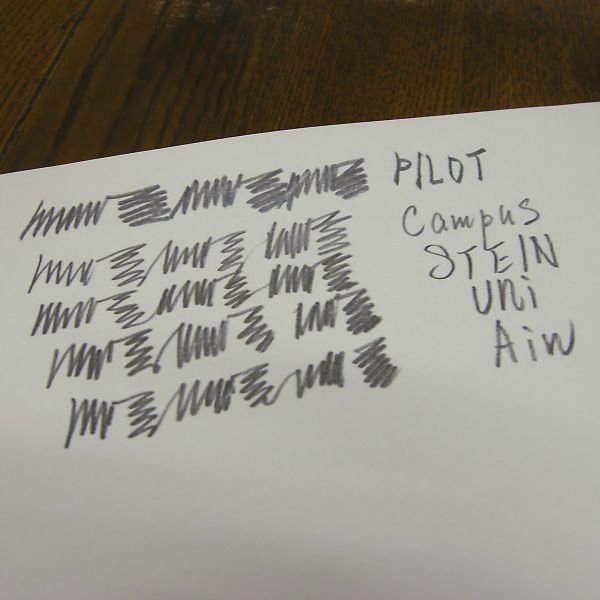 PILOT
Campus
STEIN
uni
Ain